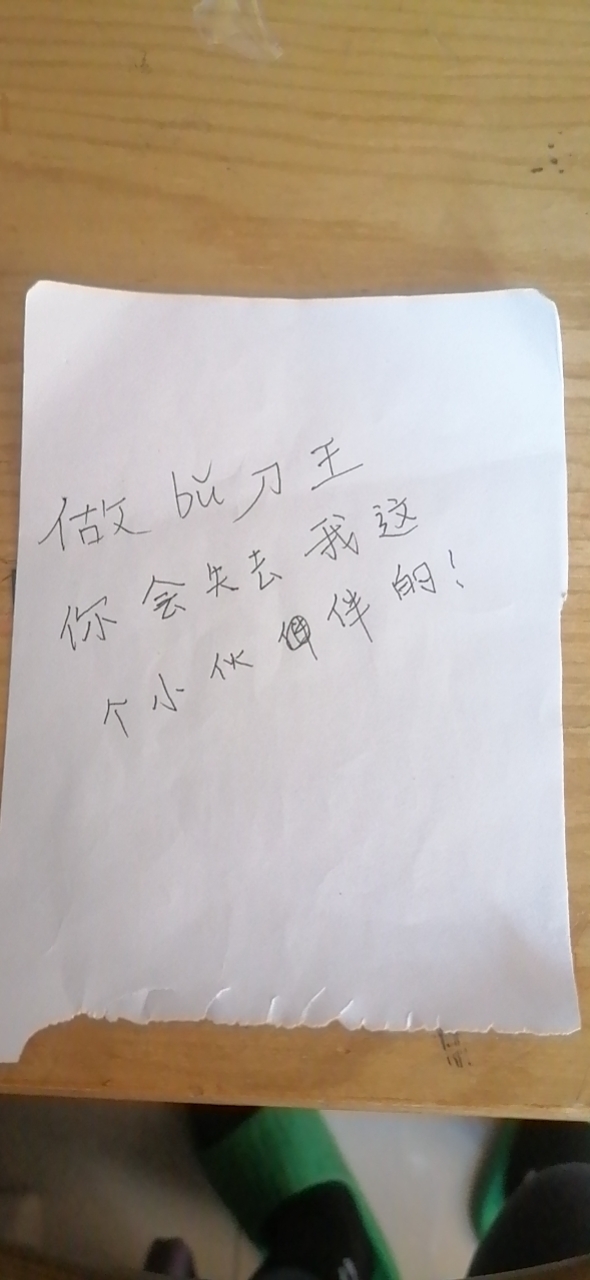 做 bǔ 刀王
你会失去我这
个小伙伴的！